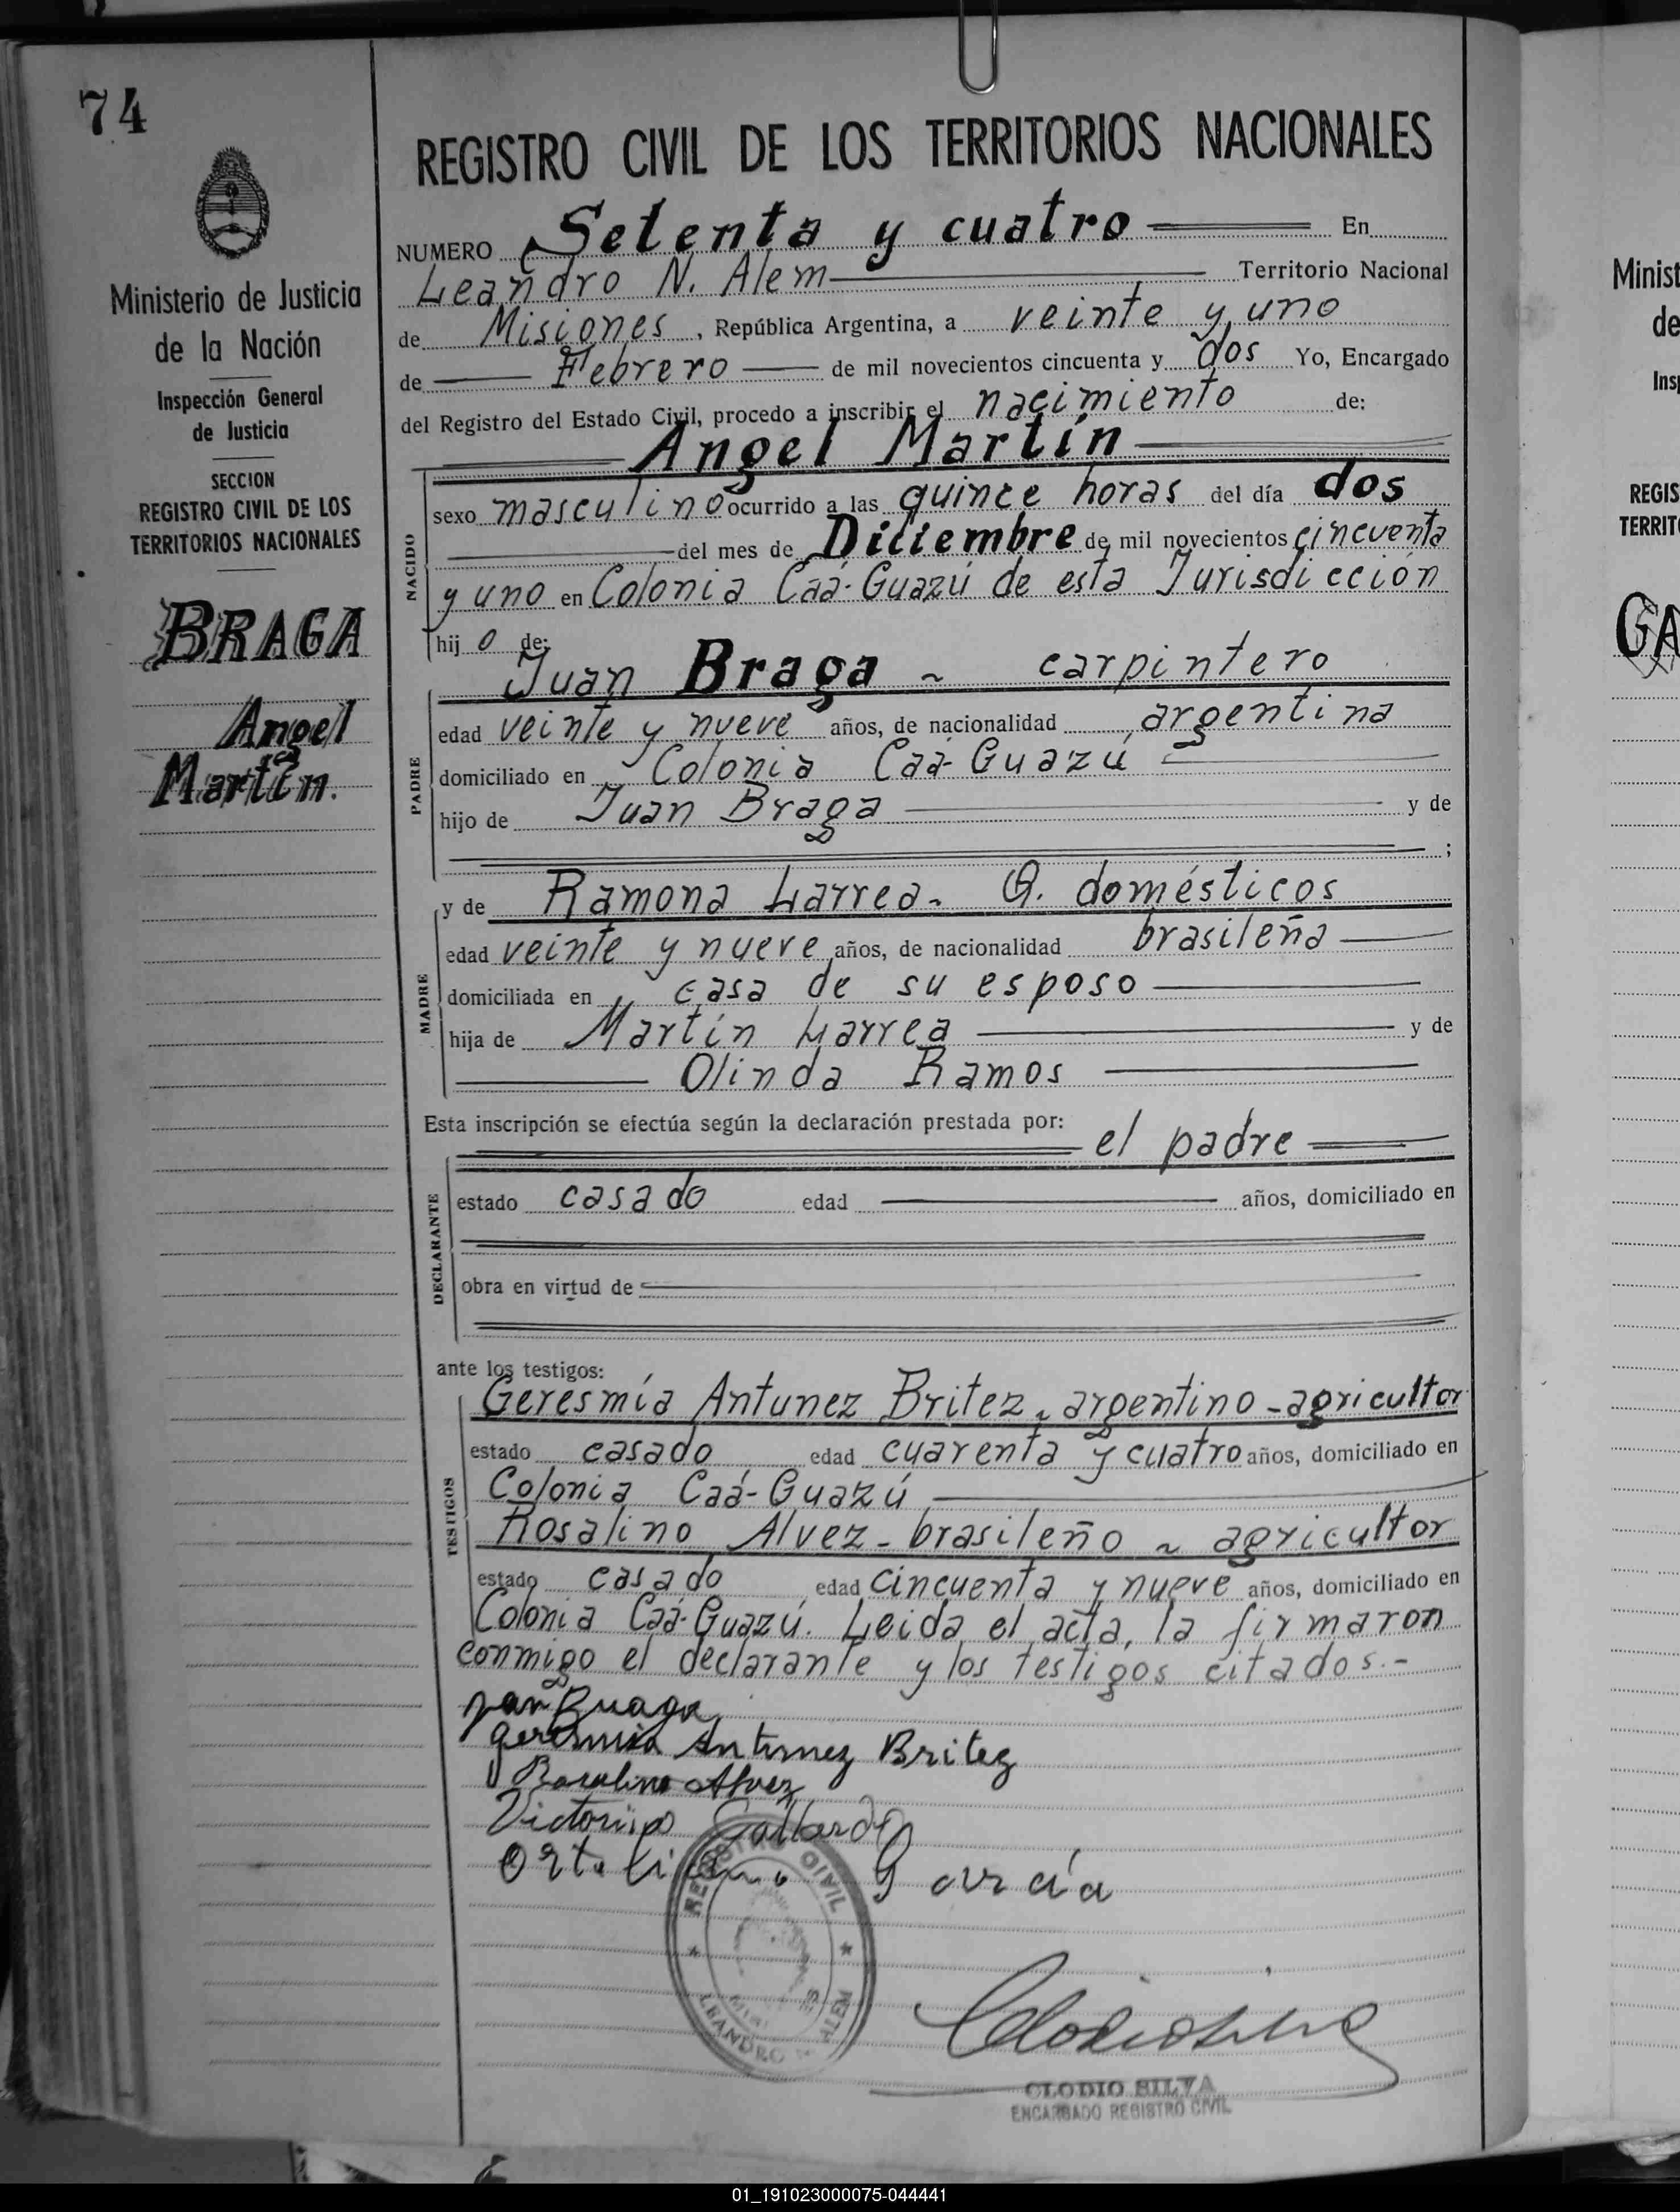 74
Ministerio de Justicia
de la Nación
Inspección General
de Justicia
SECCION
REGISTRO CIVIL DE LOS
TERRITORIOS NACIONALES
BRAGA
Angel
Martín.
REGISTRO CIVIL DE LOS TERRITORIOS NACIONALES
NUMERO Setenta y cuatro En
Leandro N. Alem Territorio Nacional
de Misiones, República Argentina, a veinte y uno
de Febrero de mil novecientos cincuenta y dos Yo, Encargado
del Registro del Estado Civil, procedo a inscribir el nacimiento de:
Angel Martín
NACIDO
sexo masculino ocurrido a las quince horas del día dos
del mes de Diciembre de mil novecientos cincuenta
y uno en Colonia Caá-Guazú de esta Jurisdicción
hijo de:
Juan Braga ~ carpintero
PADRE
edad veinte y nueve años, de nacionalidad argentina
domiciliado en Colonia Caá-Guazú
hijo de Juan Braga y de
;
y de Ramona Larrea. Q. domésticos
MADRE
edad veinte y nueve años, de nacionalidad brasileña
domiciliada en casa de su esposo
hija de Martín Larrea y de
Olinda Ramos
Esta inscripción se efectúa según la declaración prestada por:
el padre
DECLARANTE
estado casado edad años, domiciliado en
obra en virtud de
ante los testigos:
Geresmía Antunez Britez ~ argentino - agricultor
TESTIGOS
estado casado edad cuarenta y cuatro años, domiciliado en
Colonia Caá-Guazú
Rosalino Alvez - brasileño ~ agricultor
estado casado edad cincuenta y nueve años, domiciliado en
Colonia Caá-Guazú. Leida el acta, la firmaron
conmigo el declarante y los testigos citados.-
Juan Braga
Geresmia Antunez Britez
Rosalino Alvez
Victorino Gallardo
García
REGISTRO CIVIL
LEANDRO N. ALEM
CLODIO SILVA
ENCARGADO REGISTRO CIVIL
Minist
de
Ins
REGIS
TERRIT
GA
01_191023000075-044441